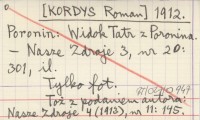 [KORDYS Roman] 1912.
Poronin: Widok Tatr z Poronina.
- Nasze Zdroje 3, nr 20:
301, il.
Tylko fot.
Toż z podaniem autora:
Nasze Zdroje 4 (1913), nr 11: 145.